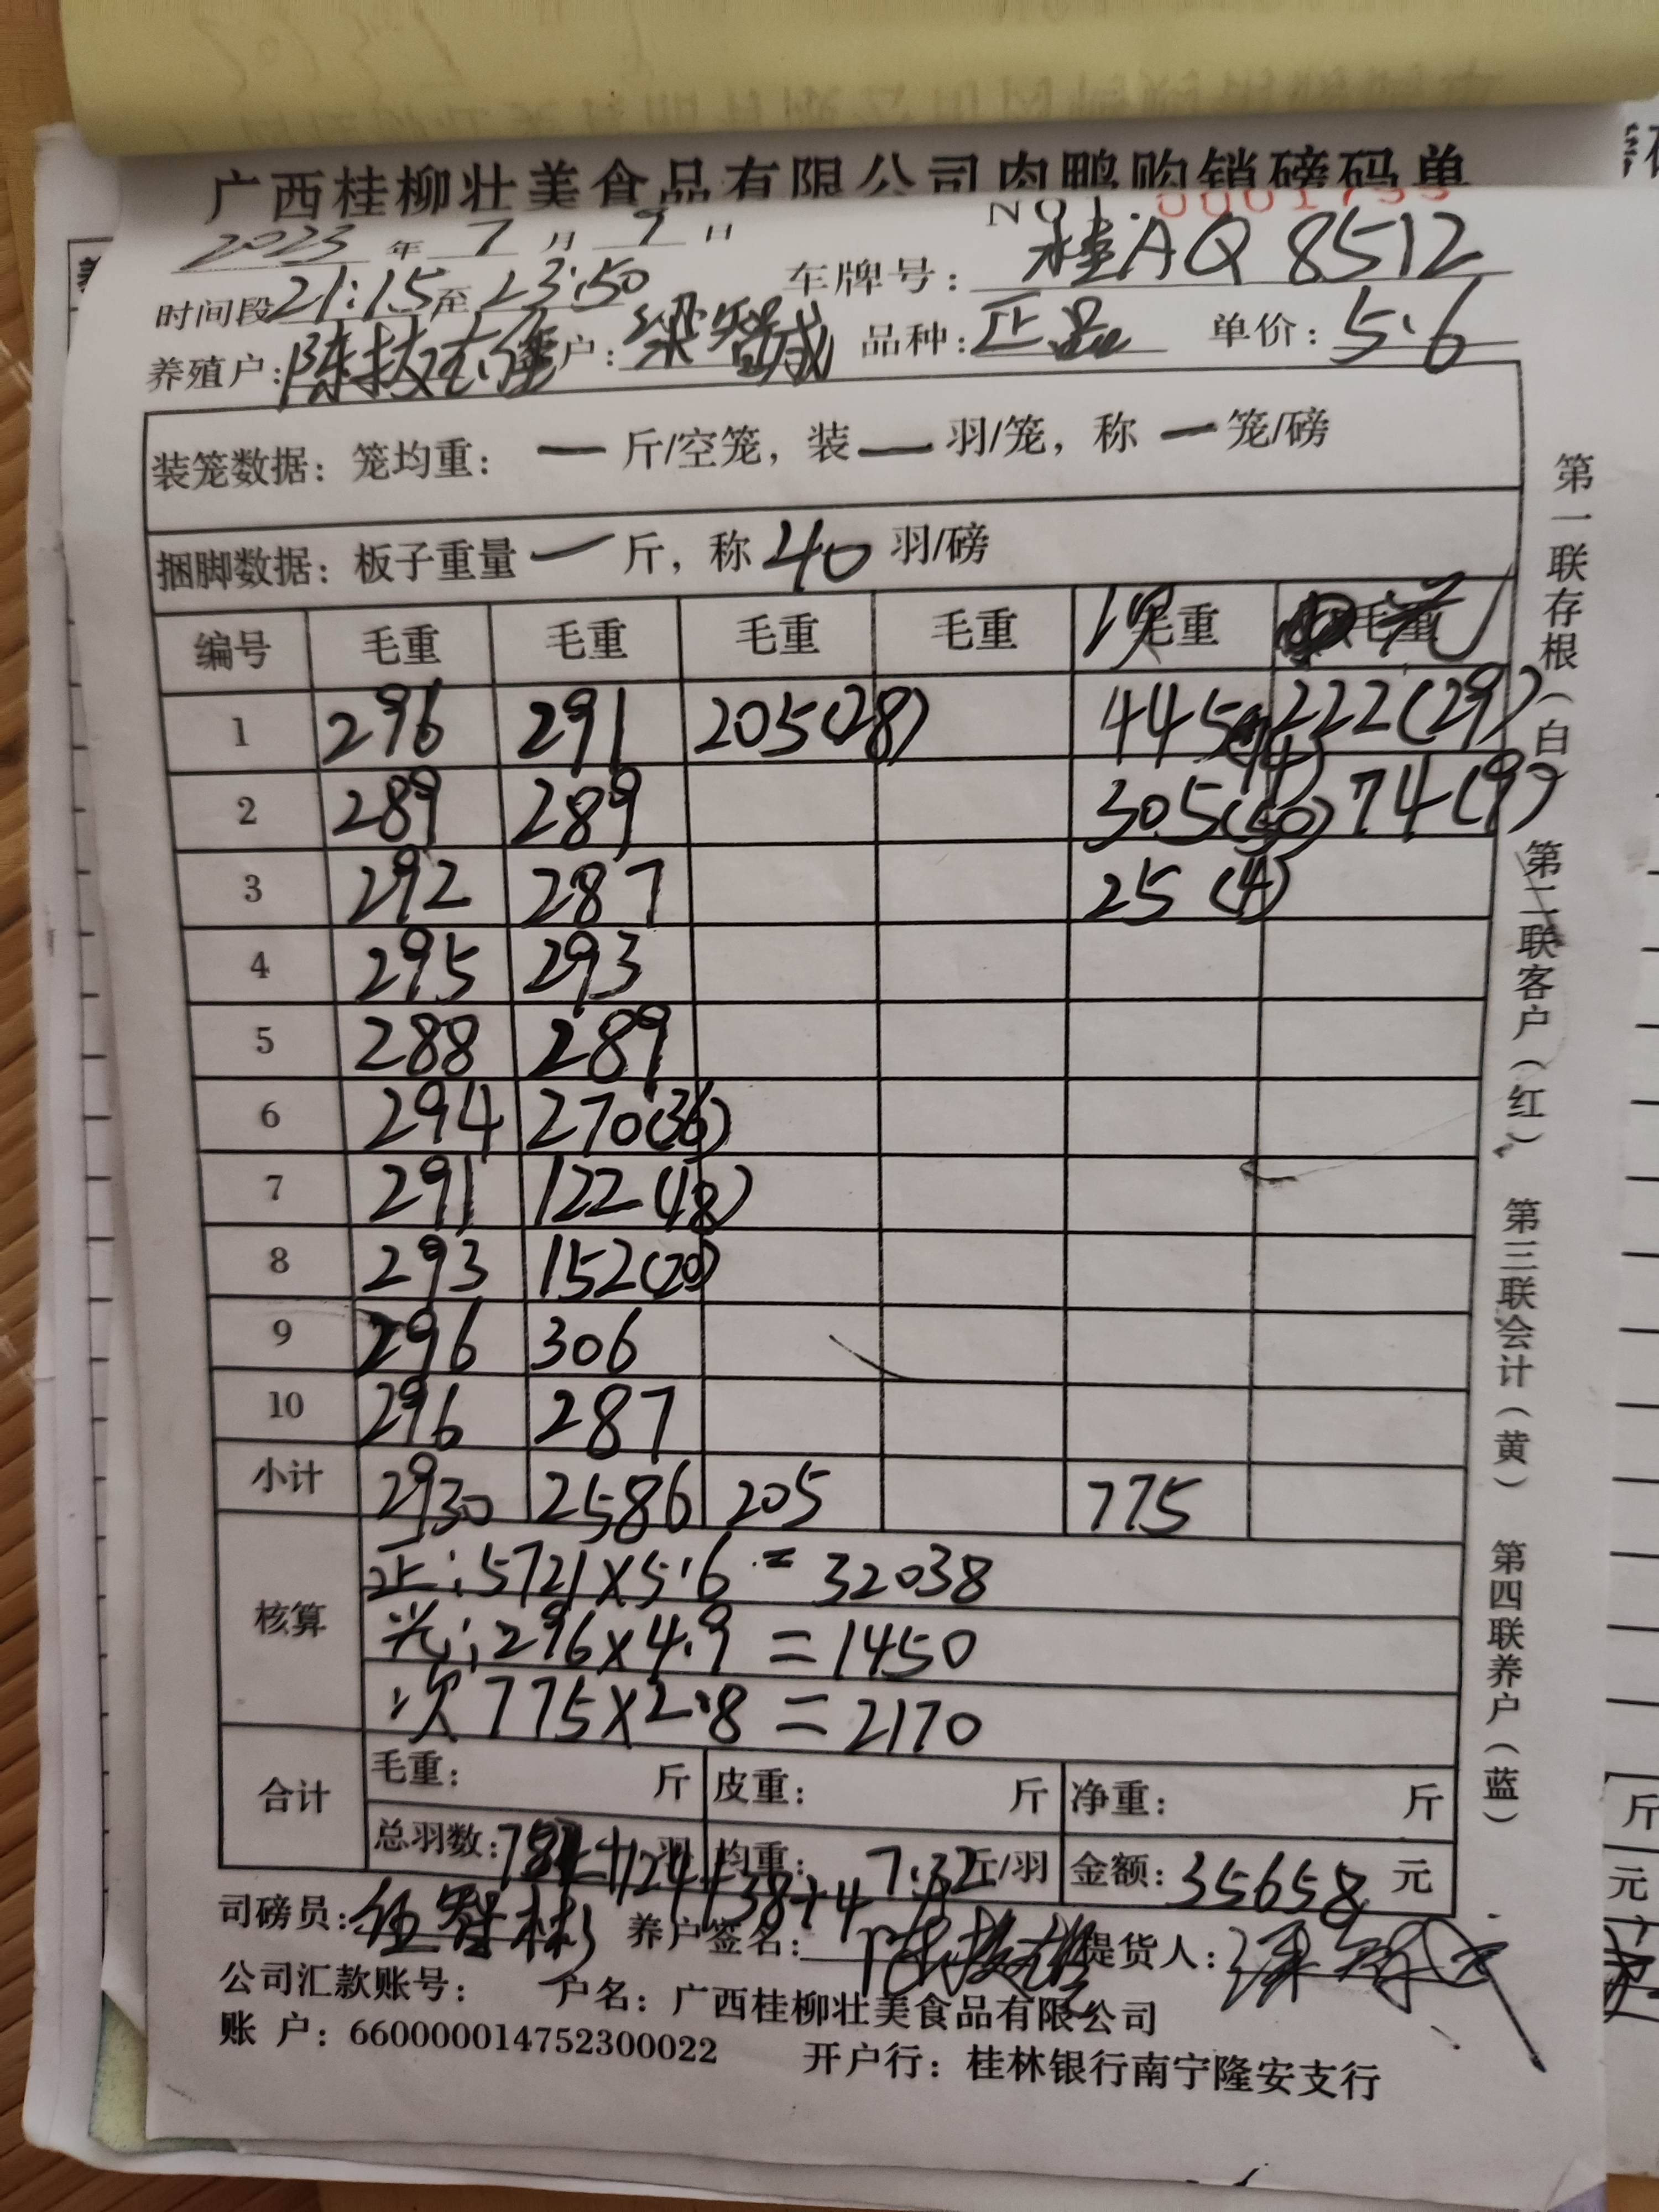 广西桂柳壮美食品有限公司肉鸭购销磅码单
2023年7月7日 NO1.0001753
时间段21:15至23:50 车牌号：桂AQ8512
养殖户： 户： 品种：正品 单价：5.6
装笼数据：笼均重：一斤/空笼，装一羽/笼，称一笼/磅
捆脚数据：板子重量一斤，称40羽/磅
编号 毛重 毛重 毛重 毛重 次毛重 毛重光
1 296 291 205(28) 445(74) 222(29)
2 289 289 305(50) 74(9)
3 292 287 25(4)
4 295 293
5 288 289
6 294 270(36)
7 291 122(18)
8 293 152(20)
9 296 306
10 296 287
小计 2930 2586 205 775
核算 正:5721×5.6=32038
光:296×4.9=1450
次775×2.8=2170
合计 毛重： 斤 皮重： 斤 净重： 斤
总羽数： 羽 均重：7.32斤/羽 金额：35658元
司磅员： 养户签名： 提货人：
公司汇款账号： 户名：广西桂柳壮美食品有限公司
账 户：660000014752300022 开户行：桂林银行南宁隆安支行
第一联存根（白） 第二联客户（红） 第三联会计（黄） 第四联养户（蓝）
斤
元